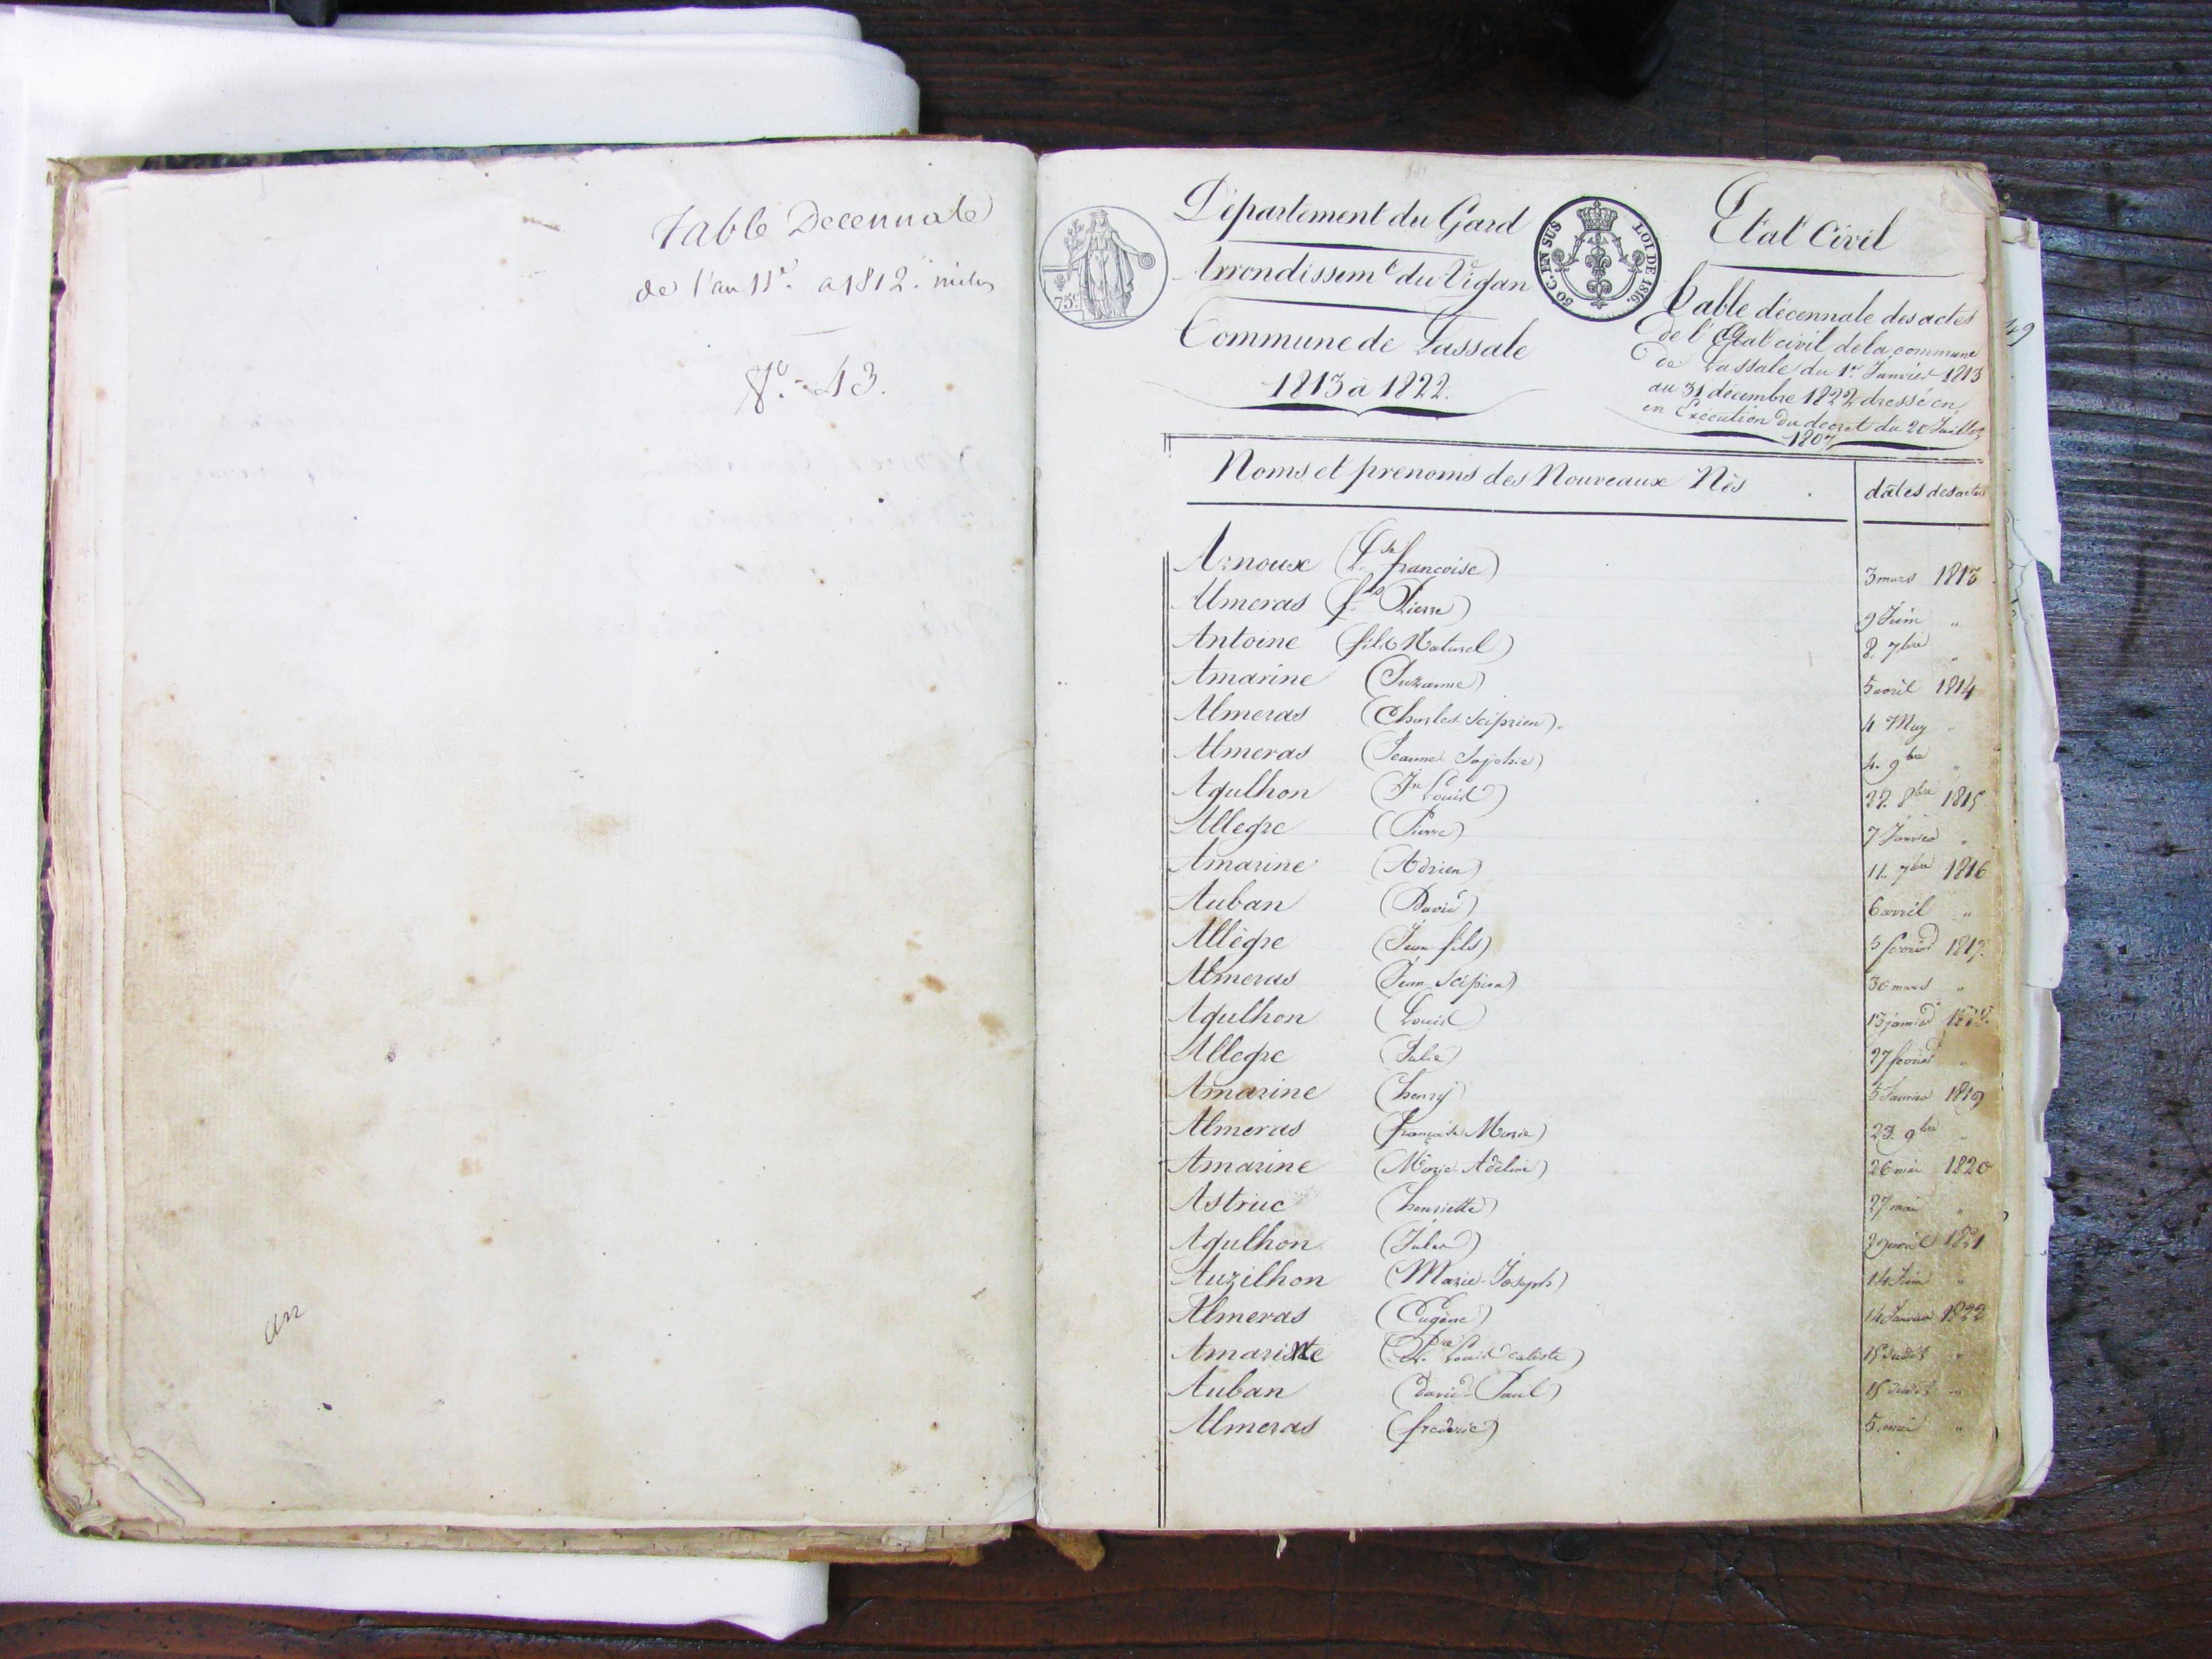 Table Decennale
de l'an 11e. a 1812.
N° = 43.
an
75c
Département du Gard
Arrondissemt du Vigan
Commune de Lassale
1813 à 1822.
50 C. EN SUS
LOI DE 1816.
Etat Civil
Table décennale des actes
de l'état civil de la commune
de Lassale du 1er Janvier 1813
au 31 décembre 1822 dressé en
en Exécution du décret du 20 Juillet
1807
49
Noms et prenoms des Nouveaux Nés dates des actes
Arnoux (Lse francoise) 3 mars 1813
Almeras (fcs Pierre) 9 Juin "
Antoine (fils Naturel) 8. 7bre "
Amarine (Suzanne) 5 avril 1814
Almeras (Charles Sciprien). 4 May "
Almeras (Jeanne Sophie) 4. 9bre "
Agulhon (Jn Louis) 22. 8bre 1815
Allegre (Pierre) 7 Janvier "
Amarine (Adrien) 11. 7bre 1816
Auban (David) 6 avril "
Allègre (Jean fils) 5 fevrier 1817.
Almeras (Jean Scipion) 30 mars "
Agulhon (Louis) 13 janvier
Allegre (Julie) 27 fevrier "
Amarine (henry) 5 Janvier 1819
Almeras (françoise Marie) 23. 9bre "
Amarine (Marie Adeline) 26 mai 1820
Astruc (henriette) 27 mai "
Agulhon (Jules) avril 1821
Auzilhon (Marie-Joseph) 14 Juin "
Almeras (Eugène) 14 Janvier 1822
Amarine (Pre Louis Caliste) 15 "
Auban (David Paul) 15 "
Almeras (frederic) 5 mai "